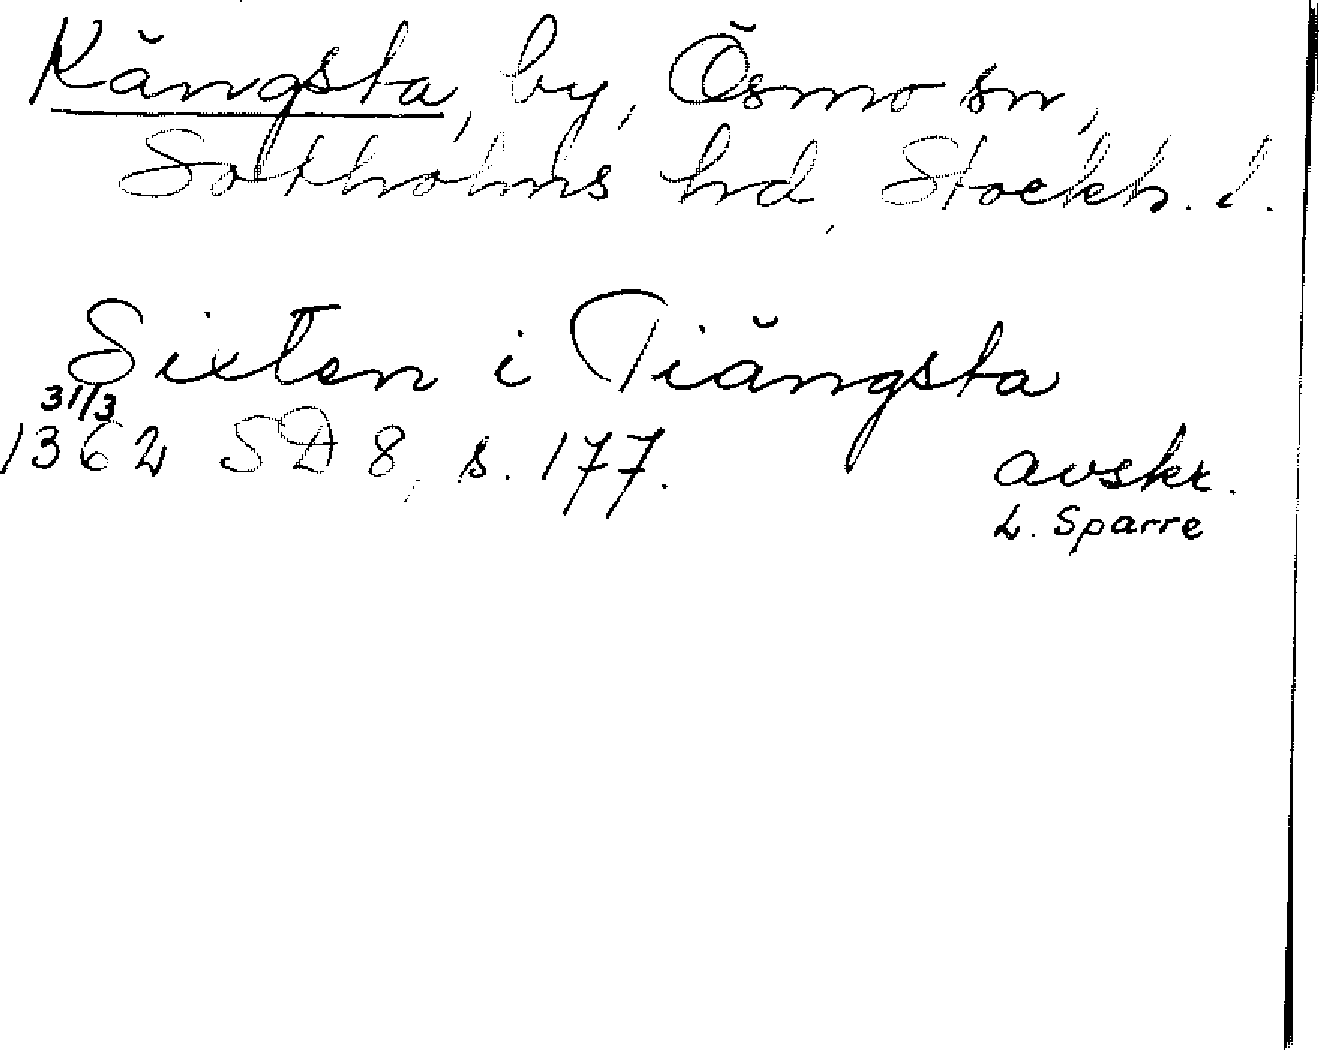 Kängsta, by, Ösmo sn,
Sotholms hd, Stockh. l.
Sixten i Tiängsta
31/3
1362 SD 8, s. 177.
avskr.
L. Sparre